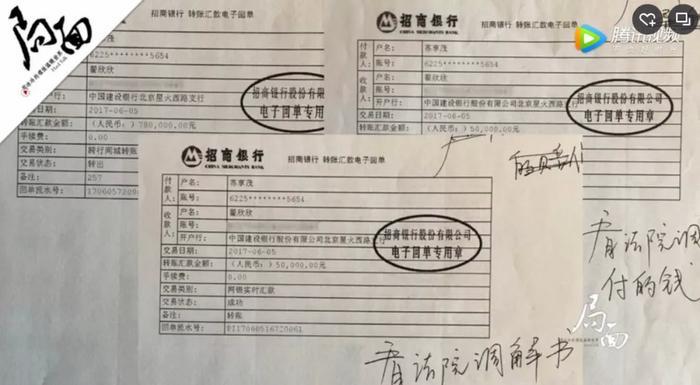 局面
Hard Talk
招商银行 转账汇款电子回单
CHINA MERCHANTS BANK
6225********5654
翟欣欣
开户行： 中国建设银行北京星火西路支行
交易日期： 2017-06-05
转账汇款金额： （人民币：）780,000.00元
手续费： 0.00
交易类别： 跨行同城转账
交易状态： 转出
备注： 257
回单流水号：
招商银行股份有限公司
电子回单专用章
招商银行 招商银行 转账汇款电子回单
CHINA MERCHANTS BANK
腾讯视频
付款人： 户名： 苏享茂
账号： 6225********5654
收款人： 户名： 翟欣欣
账号：
开户行： 中国建设银行股份有限公司北京星火西路支
交易日期： 2017-06-05
转账汇款金额： （人民币：）50,000.00元
招商银行股份有限公司
电子回单专用章
招商银行 招商银行 转账汇款电子回单
CHINA MERCHANTS BANK
付款人： 户名： 苏享茂
账号： 6225********5654
收款人： 户名： 翟欣欣
账号：
开户行： 中国建设银行股份有限公司北京星火西路支行
交易日期： 2017-06-05
转账汇款金额： （人民币：）50,000.00元
手续费： 0.00
交易类别： 网银实时汇款
交易状态： 成功
备注： 转账
回单流水号：
招商银行股份有限公司
电子回单专用章
看法院调
付的钱
看法院调解书
局面